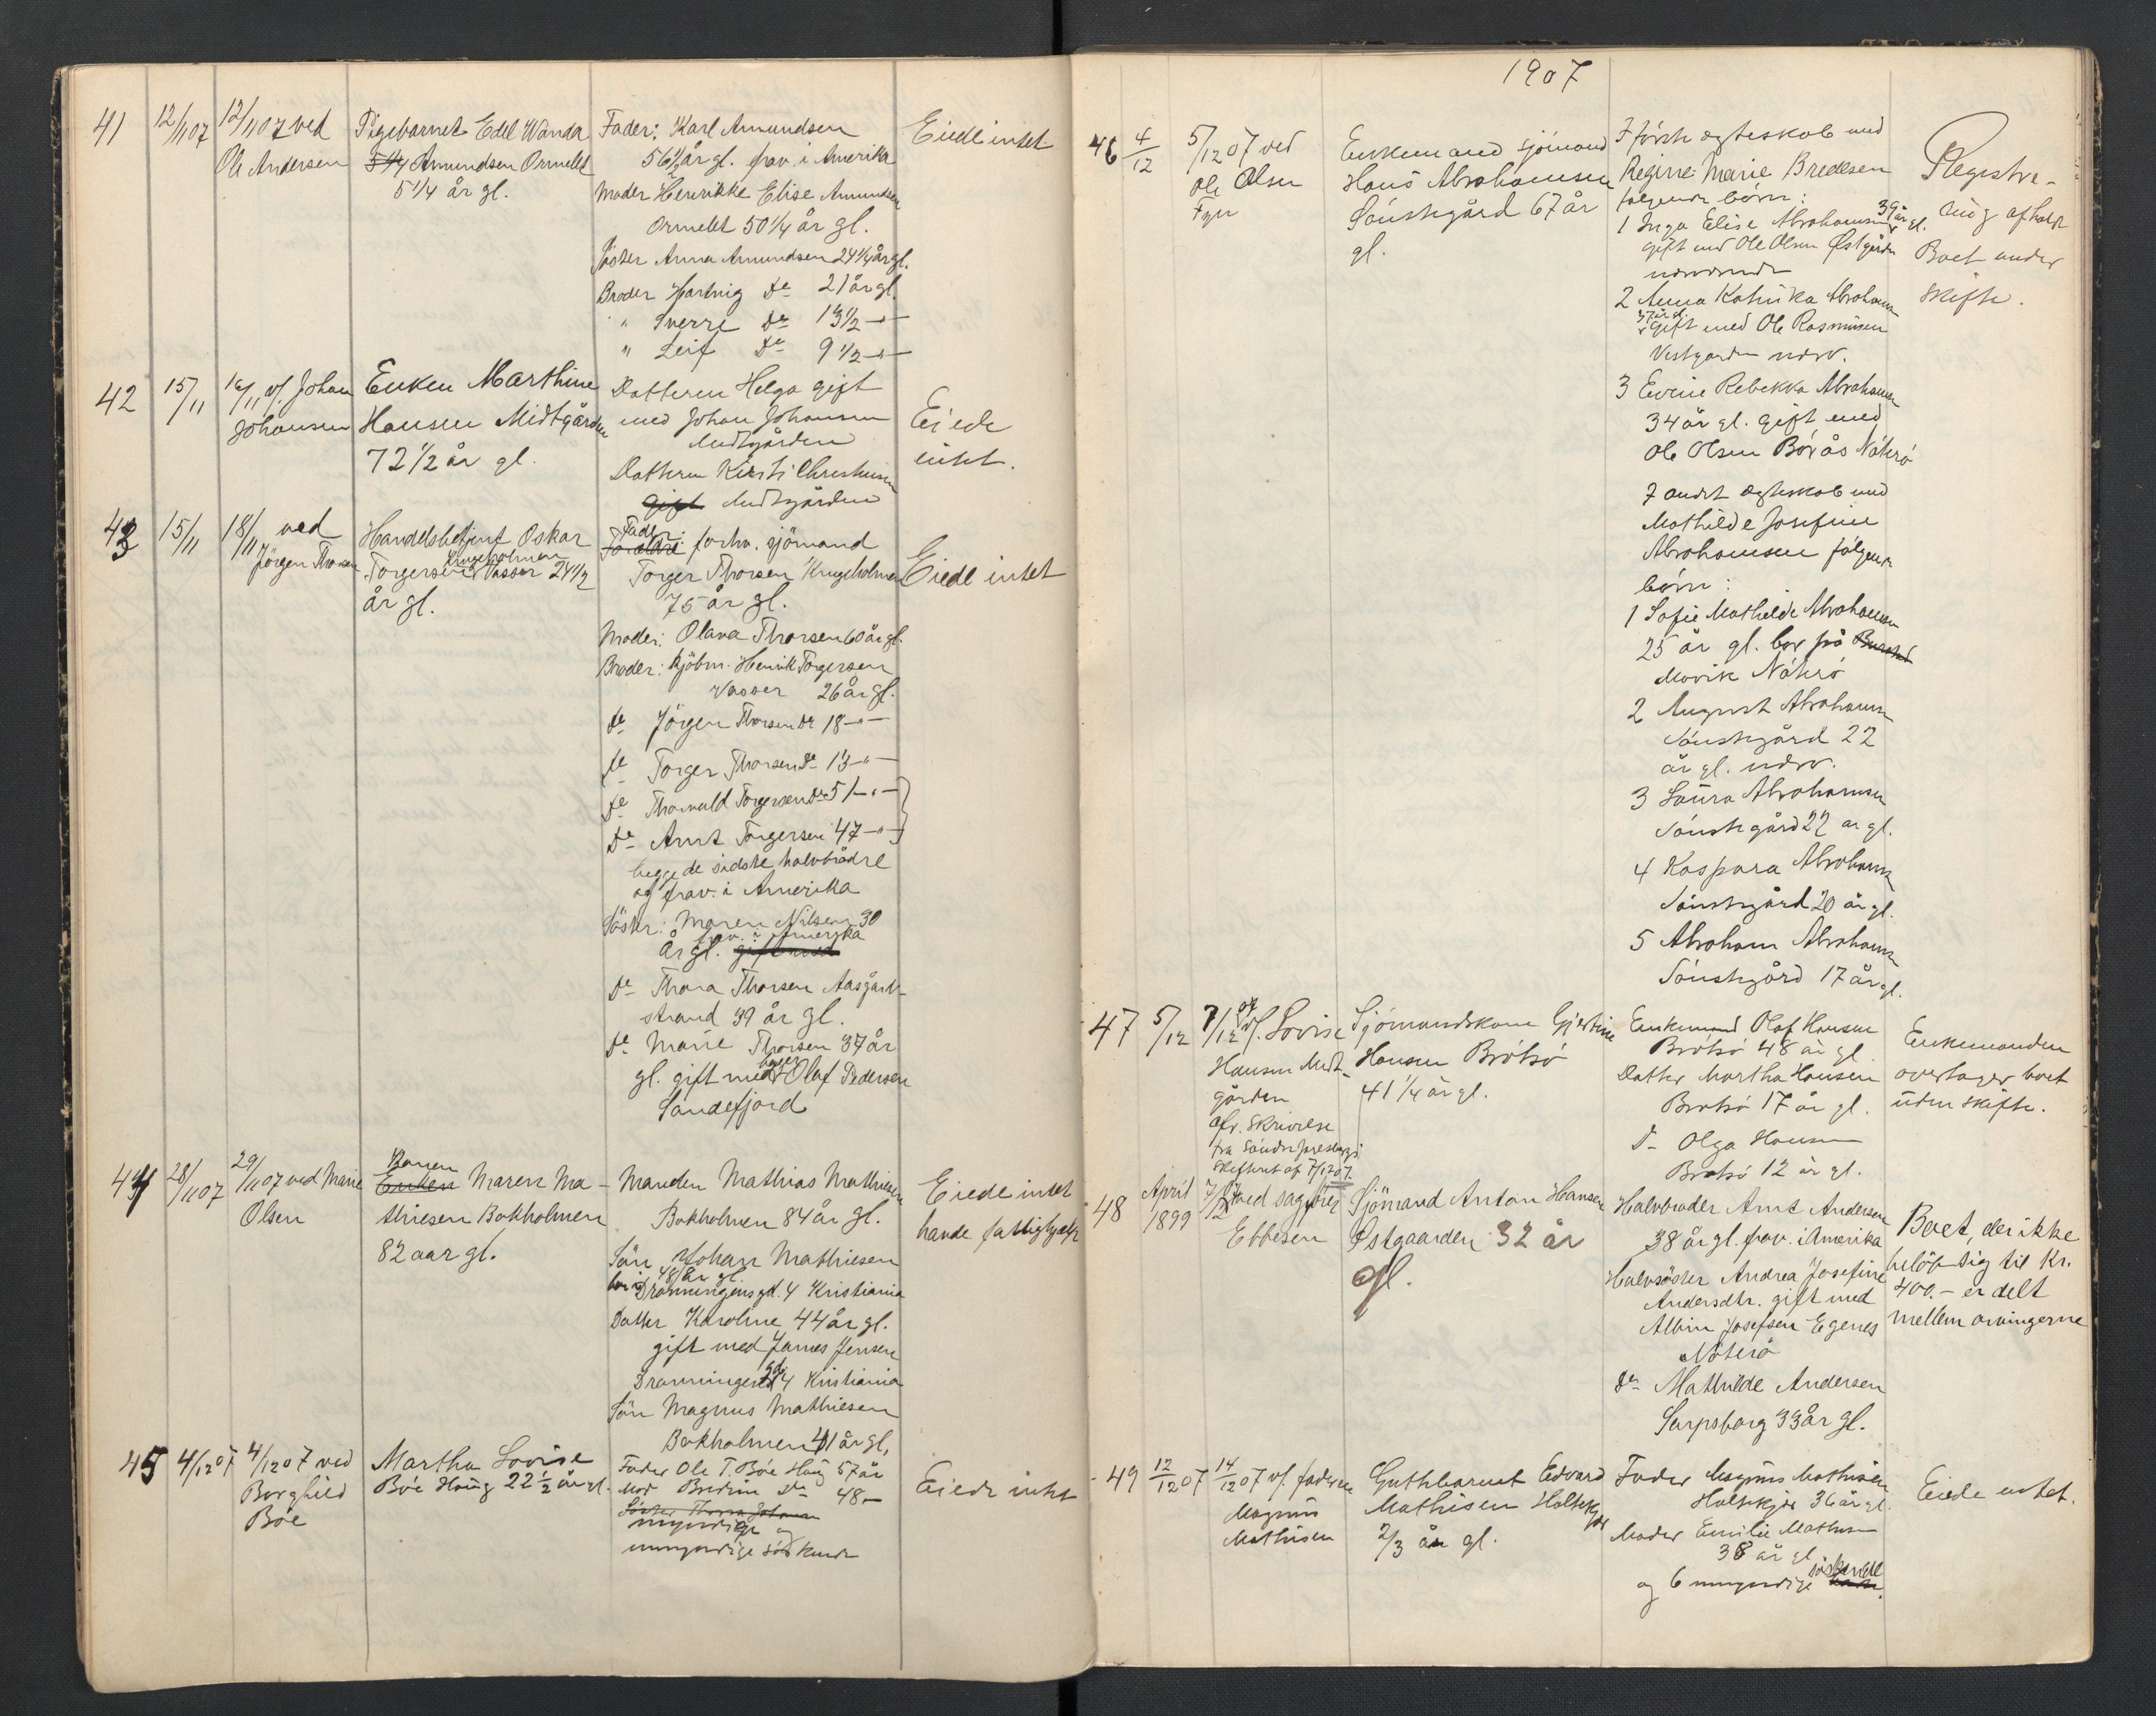 41
12/11 07
12/11 07 ved
Ole Andersen
Pigebarnet Edel Wanda
5 1/4 Amundsen Ormelet
5 1/4 år gl.
Fader: Karl Amundsen
56 1/2 år gl. frav. i Amerika
Moder Henrikke Elise Amundsen
Ormelet 50 1/4 år gl.
Söster Anna Amundsen 24 1/4 år gl.
Broder Hartvig do 21 år gl.
" Sverre do 13 1/2 -"-
" Leif do 9 1/2 -"-
Eiede intet
42
15/11
16/11 v/ Johan
Johansen
Enken Marthine
Hansen Midtgården
72 1/2 år gl.
Datteren Helga gift
med Johan Johansen
Midtgården
Datteren Kirsti Christensen
gift Midtgården
Eiede
intet.
43
15/11
18/11 ved
Jörgen Thorsen
Handelsbetjent Oskar
Krugeholmen
Torgersen Vasser 24 1/2
år gl.
Fader:
Forældre forhv. sjömand
Torger Thorsen Krugeholmen
75 år gl.
Moder: Olava Thorsen 60 år gl.
Broder: Kjöbm. Henrik Torgersen
Vasser 26 år gl.
do Jörgen Thorsen do 18 -"-
do Torger Thorsen do 13 -"-
do Thorvald Torgersen do 51 -"-
do Arnt Torgersen 47 -"-
begge de sidste halvbrödre
og frav. i Amerika
Söster: Maren Nilsen 30
frav. i Amerika
år gl. gift med
do Thora Thorsen Aasgård-
strand 39 år gl.
do Marie Thorsen 37 år
bager
gl. gift med Olaf Pedersen
Sandefjord
Eiede intet
44
28/11 07
29/11 07 ved Marie
Olsen
Konen
Enken Maren Ma-
thiesen Bokholmen
82 aar gl.
Manden Mathias Mathiesen
Bokholmen 84 år gl.
Sön Johan Mathiesen
48 år gl.
bor i Dronningensgd. 4 Kristiania
Datter Karoline 44 år gl.
gift med James Jensen
Dronningensgd. 4 Kristiania
Sön Magnus Mathiesen
Bokholmen 41 år gl.
Eiede intet
havde fattighjælp
45
4/12 07
4/12 07 ved
Borghild
Böe
Martha Lovise
Böe Haug 22 1/2 år gl.
Fader Ole T. Böe Haug 57 år
Mor Bredine do 48 -
Söster Thora Johanne
myndige og
umyndige söskende
Eiede intet
1907
46
4/12
5/12 07 ved
Ole Olsen
Fyn
Enkemand sjömand
Hans Abrahamsen
Sönstegård 67 år
gl.
I förste ægteskab med
Regine Marie Bredesen
fölgende börn:
1 Inga Elise Abrahamsen 39 år gl.
gift med Ole Olsen Østgården
nærværende
2 Anna Katrika Abrahamsen
37 år gl.
gift med Ole Rasmusen
Vestgarden nærv.
3 Evine Rebekka Abrahamsen
34 år gl. gift med
Ole Olsen Börås Nöterö
I andet ægteskab med
Mathilde Josefine
Abrahamsen fölgende
börn:
1 Sofie Mathilde Abrahamsen
25 år gl. bor på
Movik Nöterö
2 August Abrahamsen
Sönstegård 22
år gl. nærv.
3 Laura Abrahamsen
Sönstegård 22 år gl.
4 Kaspara Abrahamsen
Sönstegård 20 år gl.
5 Abraham Abrahamsen
Sönstegård 17 år gl.
Registre-
ring afholdt
Boet under
skifte.
47
5/12
7/12 07 v/. Lovise
Hansen Midt-
gården
cfr. skrivelse
fra Söndre Jarlsbergs
skifteret af 7/12 07.
Sjömandskone Gjertine
Hansen Brötsö
41 1/4 år gl.
Enkemand Olaf Hansen
Brötsö 48 år gl.
Datter Martha Hansen
Brötsö 17 år gl.
do Olga Hansen
Brötsö 12 år gl.
Enkemanden
overtager boet
uden skifte.
48
April
1899
7/12 07 med sagförer
Ebbesen
Sjömand Anton Hansen
Østgaarden 32 år
gl.
Halvbroder Arnt Andersen
38 år gl. frav. i Amerika
Halvsöster Andrea Josefine
Andersdtr. gift med
Albin Josefsen Egenes
Nöterö
do Mathilde Andersen
Sarpsborg 33 år gl.
Boet, der ikke
belöp sig til Kr.
400.- er delt
mellem arvingerne
49
12/12 07
14/12 07 v/. faderen
Magnus
Mathisen
Guttebarnet Edvard
Mathisen Holtekjær
2/3 år gl.
Fader Magnus Mathisen
Holtekjær 36 år gl.
Moder Emilie Mathisen
38 år gl.
og 6 umyndige söskende
Eiede intet.